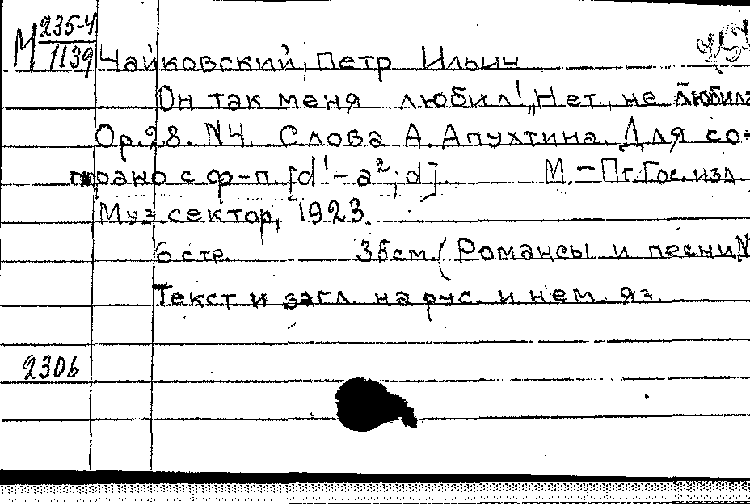 М 235-4
1139
Чайковский, Петр Ильич
Он так меня любил! „Нет, не любила
Ор.28. N4. Слова А. Апухтина. Для со-
прано с ф-п. [d¹-a²; d]. М.-Пг. Гос. изд.
Муз. сектор, 1923.
6 стр. 35см. (Романсы и песни N
Текст и загл. на рус. и нем. яз.
2306